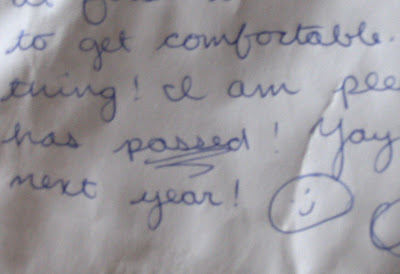 to get comfortable.
thing! I am
has passed! Yay
next year!